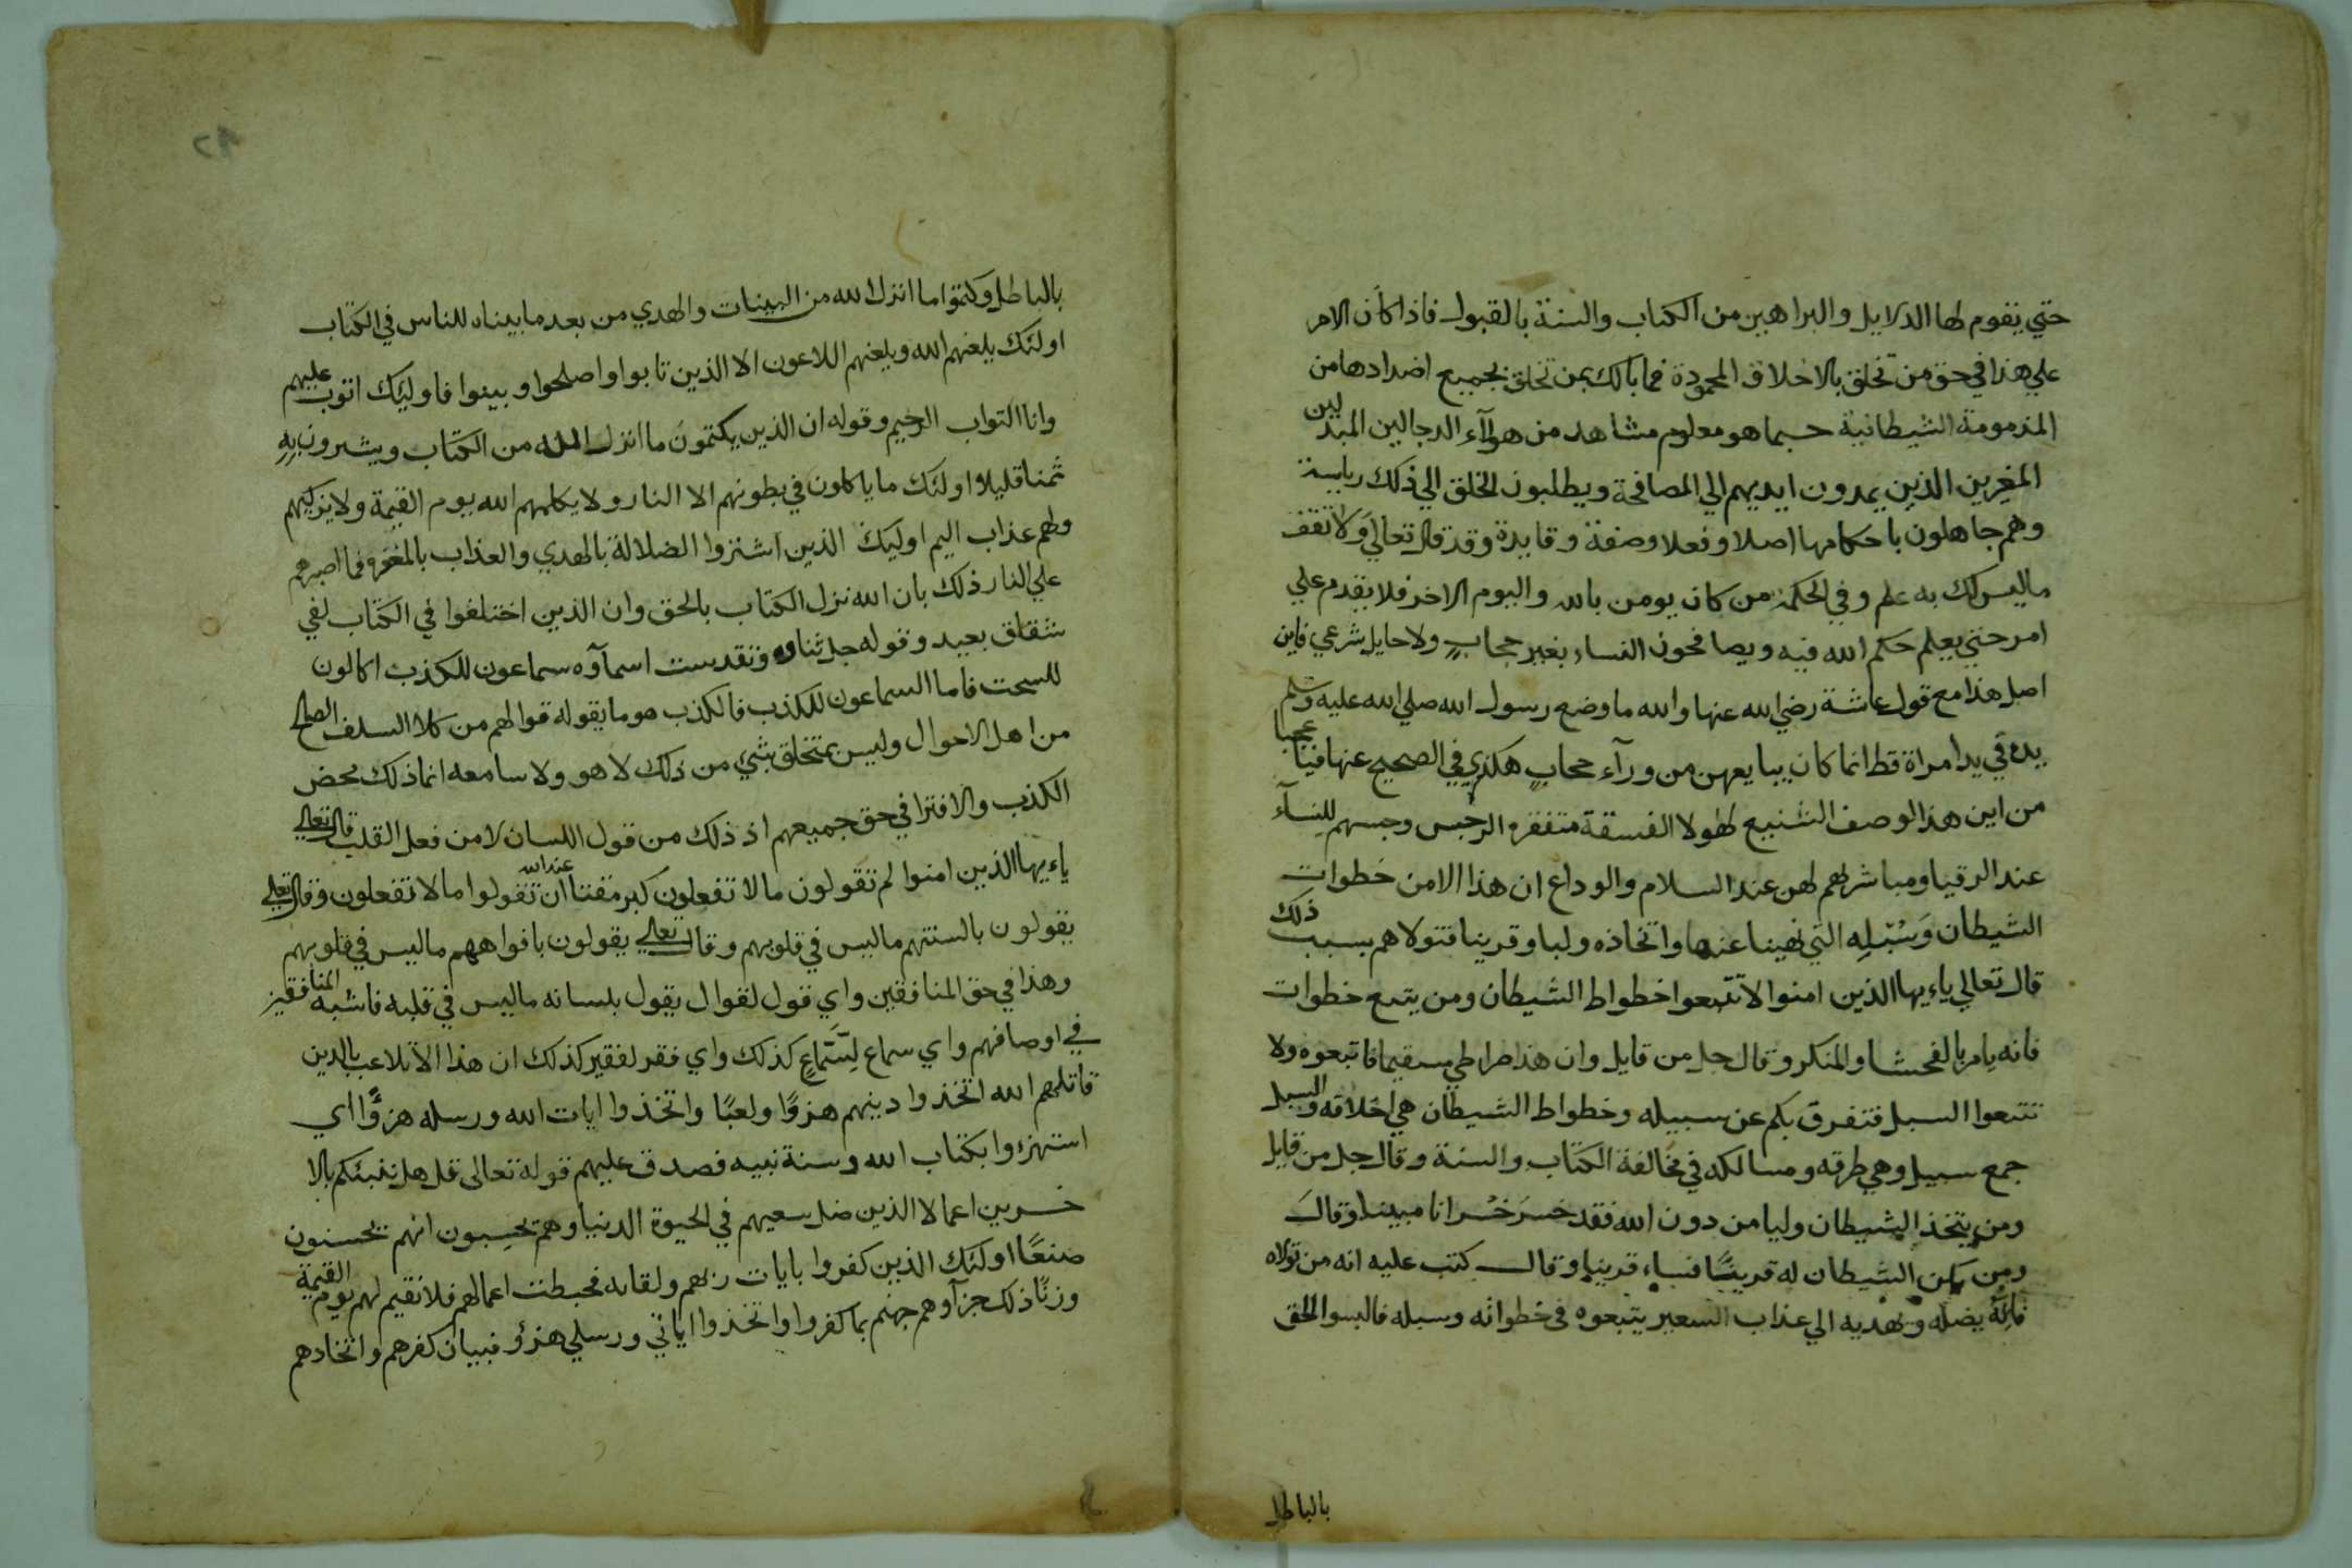 حتي يقوم لها الدلايل والبراهين من الكتاب والسنة بالقبول فاذا كان الامر
علي هذا في حق من تخلق بالاخلاق المحمودة فما بالك بمن تخلق بجميع اضدادها من
المذمومة الشيطانية حسبما هو معلوم مشاهد من هولآء الدجالين المبدلين
المغيرين الذين يمدون ايديهم الي المصافحة ويطلبون الخلق الي ذلك رياسة
وهم جاهلون باحكامها اصلا وفعلا وصفة وفايدة وقد قال تعالي وَلا تقف
ماليس لك به علم وفي الحكمة من كان يومن بالله واليوم الاخر فلا يقدم علي
امر حتي يعلم حكم الله فيه ويصافحون النساء بغير حجابٍ ولا حايل شرعي فاين
اصل هذا مع قول عاشة رضي الله عنها والله ما وضع رسول الله صلي الله عليه وسلم
يده في يد امراة قط انما كان يبايعهن من ورآء حجابٍ هكذي في الصحيح عنها فيا عجبا
من اين هذا الوصف الشنيع لهولا الفسقة متفقره الرجس وجسهم للنسآء
عند الرقيا ومباشرلهم لهن عند السلام والوداع ان هذا الا من خطوات
الشيطان وَسُبْلِهِ التي نهينا عنها واتخاذه وليا وقرينا فتولاهم بسبب ذلك
قال تعالي ياءيها الذين امنوا لا تتبعوا خطواط الشيطان ومن يتبع خطوات
فانه يامر بالفحشا والمنكر وقال جل من قايل وان هذا صراطي مسقيما فاتبعوه ولا
تتبعوا السبل فتفرق بكم عن سبيله وخطواط الشيطان هي اخلاقه والسبل
جمع سبيل وهي طرقه ومسالكه في مخالفة الكتاب والسنة وقال جل من قايل
ومن يتخذ الشيطان وليا من دون الله فقد خسرَ خُسْرانا مبينا وقالَ
ومن يكن الشيطان له قرينًا فساء قرينا وقال كتب عليه انه من تولاه
فانه يضله ويهديه الي عذاب السعير يتبعوه في خطواته وسبله فالبسوا الحق
بالباطل
بالباطل وكتموا ما انزل الله من البينات والهدي من بعد ما بيناه للناس في الكتاب
اولئك يلعنهم الله ويلعنهم اللاعون الا الذين تابوا واصلحوا وبينوا فاوليك اتوب عليهم
وانا التواب الرحيم وقوله ان الذين يكتمون ما انزل الله من الكتاب ويشرون بِهِ
ثمنا قليلا اولئك ما ياكلون في بطونهم الا النار ولا يكلمهم الله يوم القيمة ولا يزكيهم
ولهم عذاب اليم اوليك الذين اشتروا الضلالة بالهدي والعذاب بالمغفره فما اصبرهم
علي النار ذلك بان الله نزل الكتاب بالحق وان الذين اختلفوا في الكتاب لفي
شقاق بعيد وقوله جل ثناوه وتقدست اسمآوه سماعون للكذب اكالون
للسحت فاما السماعون للكذب فالكذب هو ما يقوله قوالهم من كلا السلف الصلح
من اهل الاحوال وليس بمتخلق بشي من ذلك لا هو ولا سامعه انما ذلك محض
الكذب والافترا في حق جميعهم اذ ذلك من قول اللسان لا من فعل القلب قال تعالي
ياءيها الذين امنوا لم تقولون ما لا تفعلون كبر مقتا عند الله ان تقولوا ما لا تفعلون وقال تعلي
يقولون بالسنتهم ماليس في قلوبهم وقال تعلي يقولون بافواههم ماليس في قلوبهم
وهذا في حق المنافقين واي قول لقوال يقول بلسانه ماليس في قلبه فاشبه المنافقين
في اوصافهم واي سماع لِسَّمَاعٍ كذلك واي فقر لفقير كذلك ان هذا الا تلاعب بالدين
قاتلهم الله اتخذوا دينهم هزوًا ولعبًا واتخذوا ايات الله ورسله هزؤًا اي
استهزءوا بكتاب الله وسنة نبيه فصدق عليهم قوله تعالى قل هل ننبئكم بالا
خسرين اعمالا الذين ضل سعيهم في الحيوة الدنيا وهم يحسِبون انهم يحسنون
صنعًا اولئك الذين كفروا بايات ربهم ولقايه فحبطت اعمالهم فلا نقيم لهم يوم القيمة
وزنًا ذلك جزآوهم جهنم بما كفروا واتخذوا اياتي ورسلي هزؤ فبيان كفرهم واتخادهم